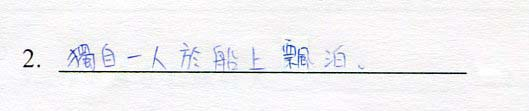 2. 獨自一人於船上飄泊、